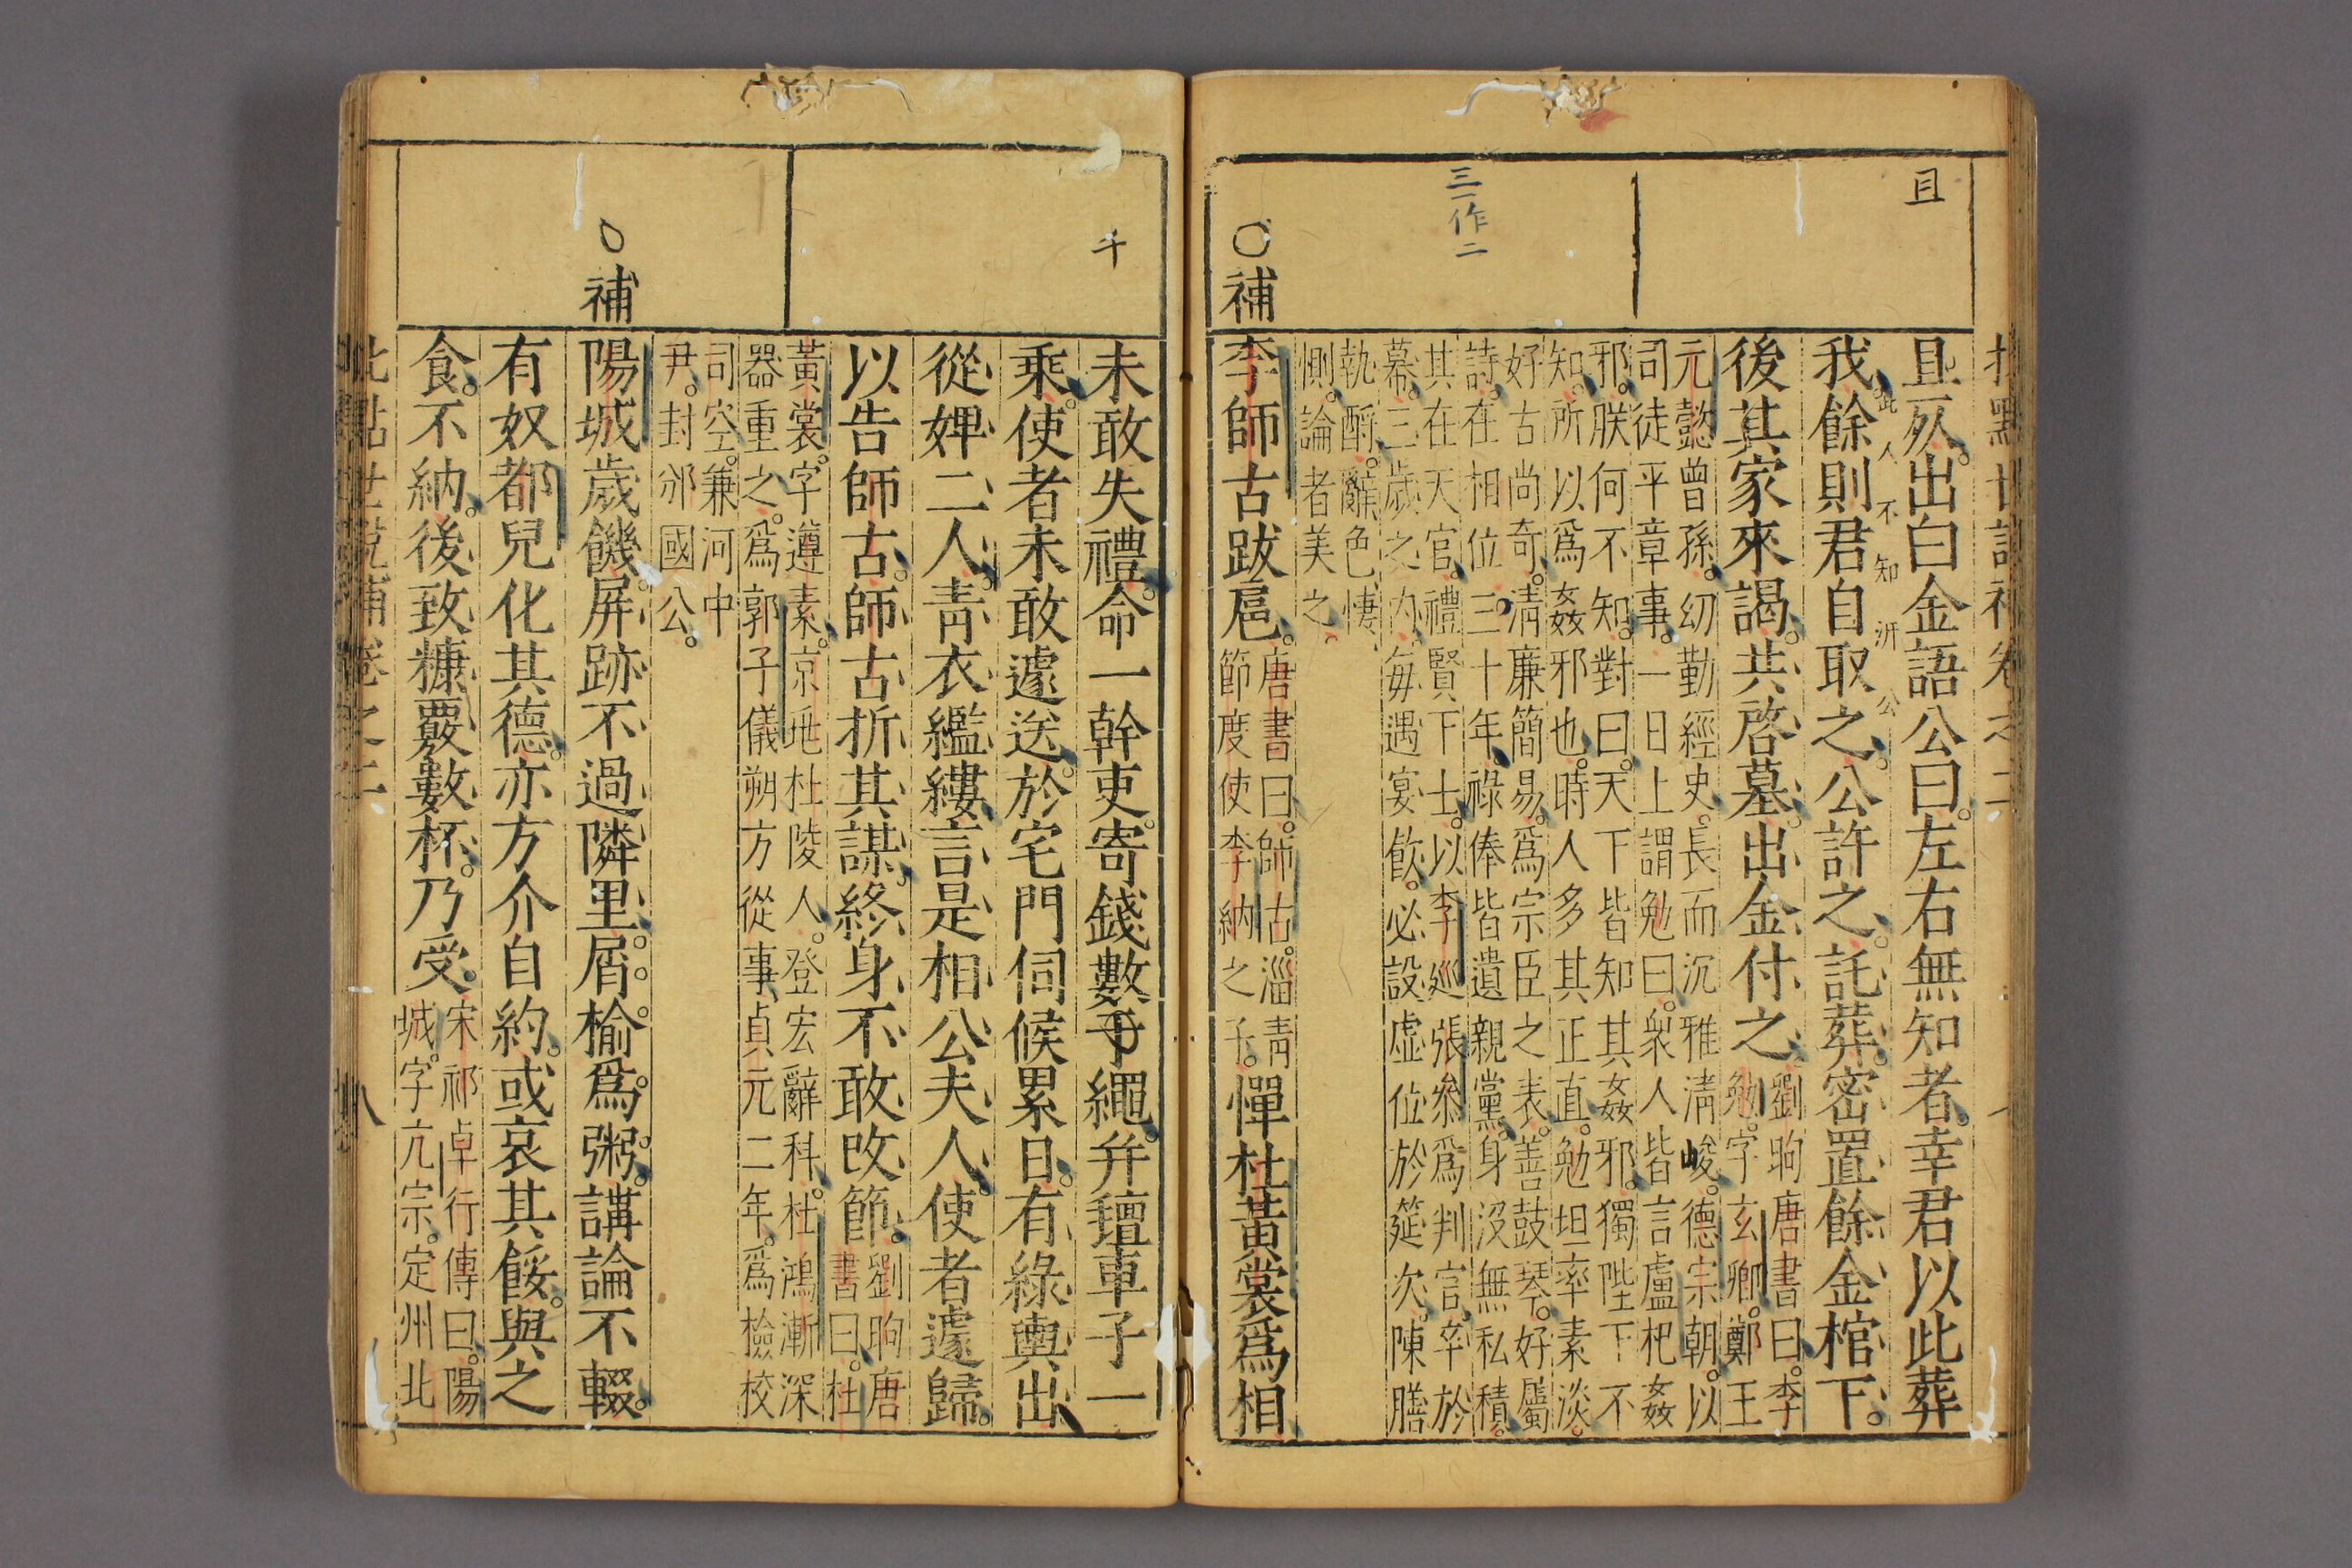 批點世說補卷之二
且
且死。出白金語公曰。左右無知者。幸君以此葬
我。餘則君自取之。公許之。託葬。密置餘金棺下。
此人不知沂公
後其家來謁。共啓墓。出金付之。
劉昫唐書曰。李
勉。字玄卿。鄭王
元懿曾孫。幼勤經史。長而沉雅淸峻。德宗朝。以
司徒平章事。一日上謂勉曰。衆人皆言盧杞姦
邪。朕何不知。對曰。天下皆知其姦邪。獨陛下不
知。所以爲姦邪也。時人多其正直。勉坦率素淡。
好古尚奇。淸廉簡易。爲宗臣之表。善鼓琴。好屬
詩。在相位三十年。祿俸皆遺親黨。身沒無私積。
三一作二
其在天官。禮賢下士。以李巡張參爲判官。卒於
幕。三歲之內。每遇宴飮。必設虛位於筵次。陳膳
執酹。辭色悽
惻。論者美之。
○補
李師古跋扈。
唐書曰。師古。淄青
節度使李納之子。
憚杜黃裳爲相
千
未敢失禮。命一幹吏。寄錢數千繩。并氊車子一
乘。使者未敢遽送。於宅門伺候累日。有綠輿出
從婢二人。靑衣繿縷。言是相公夫人。使者遽歸。
以告師古。師古折其謀。終身不敢改節。
劉昫唐
書曰。杜
黃裳。字遵素。京兆杜陵人。登宏辭科。杜鴻漸深
器重之。爲郭子儀朔方從事。貞元二年。爲檢校
司空。兼河中
尹。封邠國公。
○補
陽城歲饑。屏跡不過隣里。屑榆爲粥。講論不輟。
有奴都兒化其德。亦方介自約。或哀其餒。與之
食。不納。後致糠覈數杯。乃受。
宋祁卓行傳曰。陽
城。字亢宗。定州北
批點世說補卷之二
八